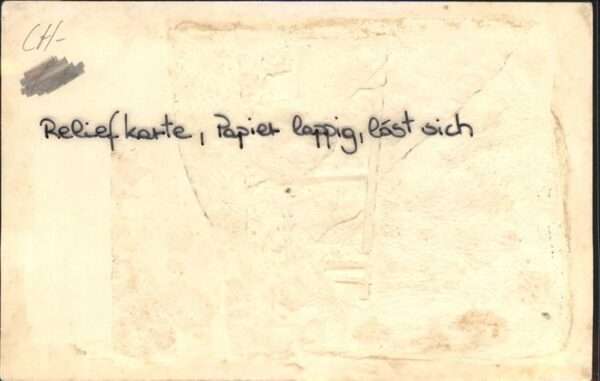 CH-
Reliefkarte, Papier lappig, löst sich